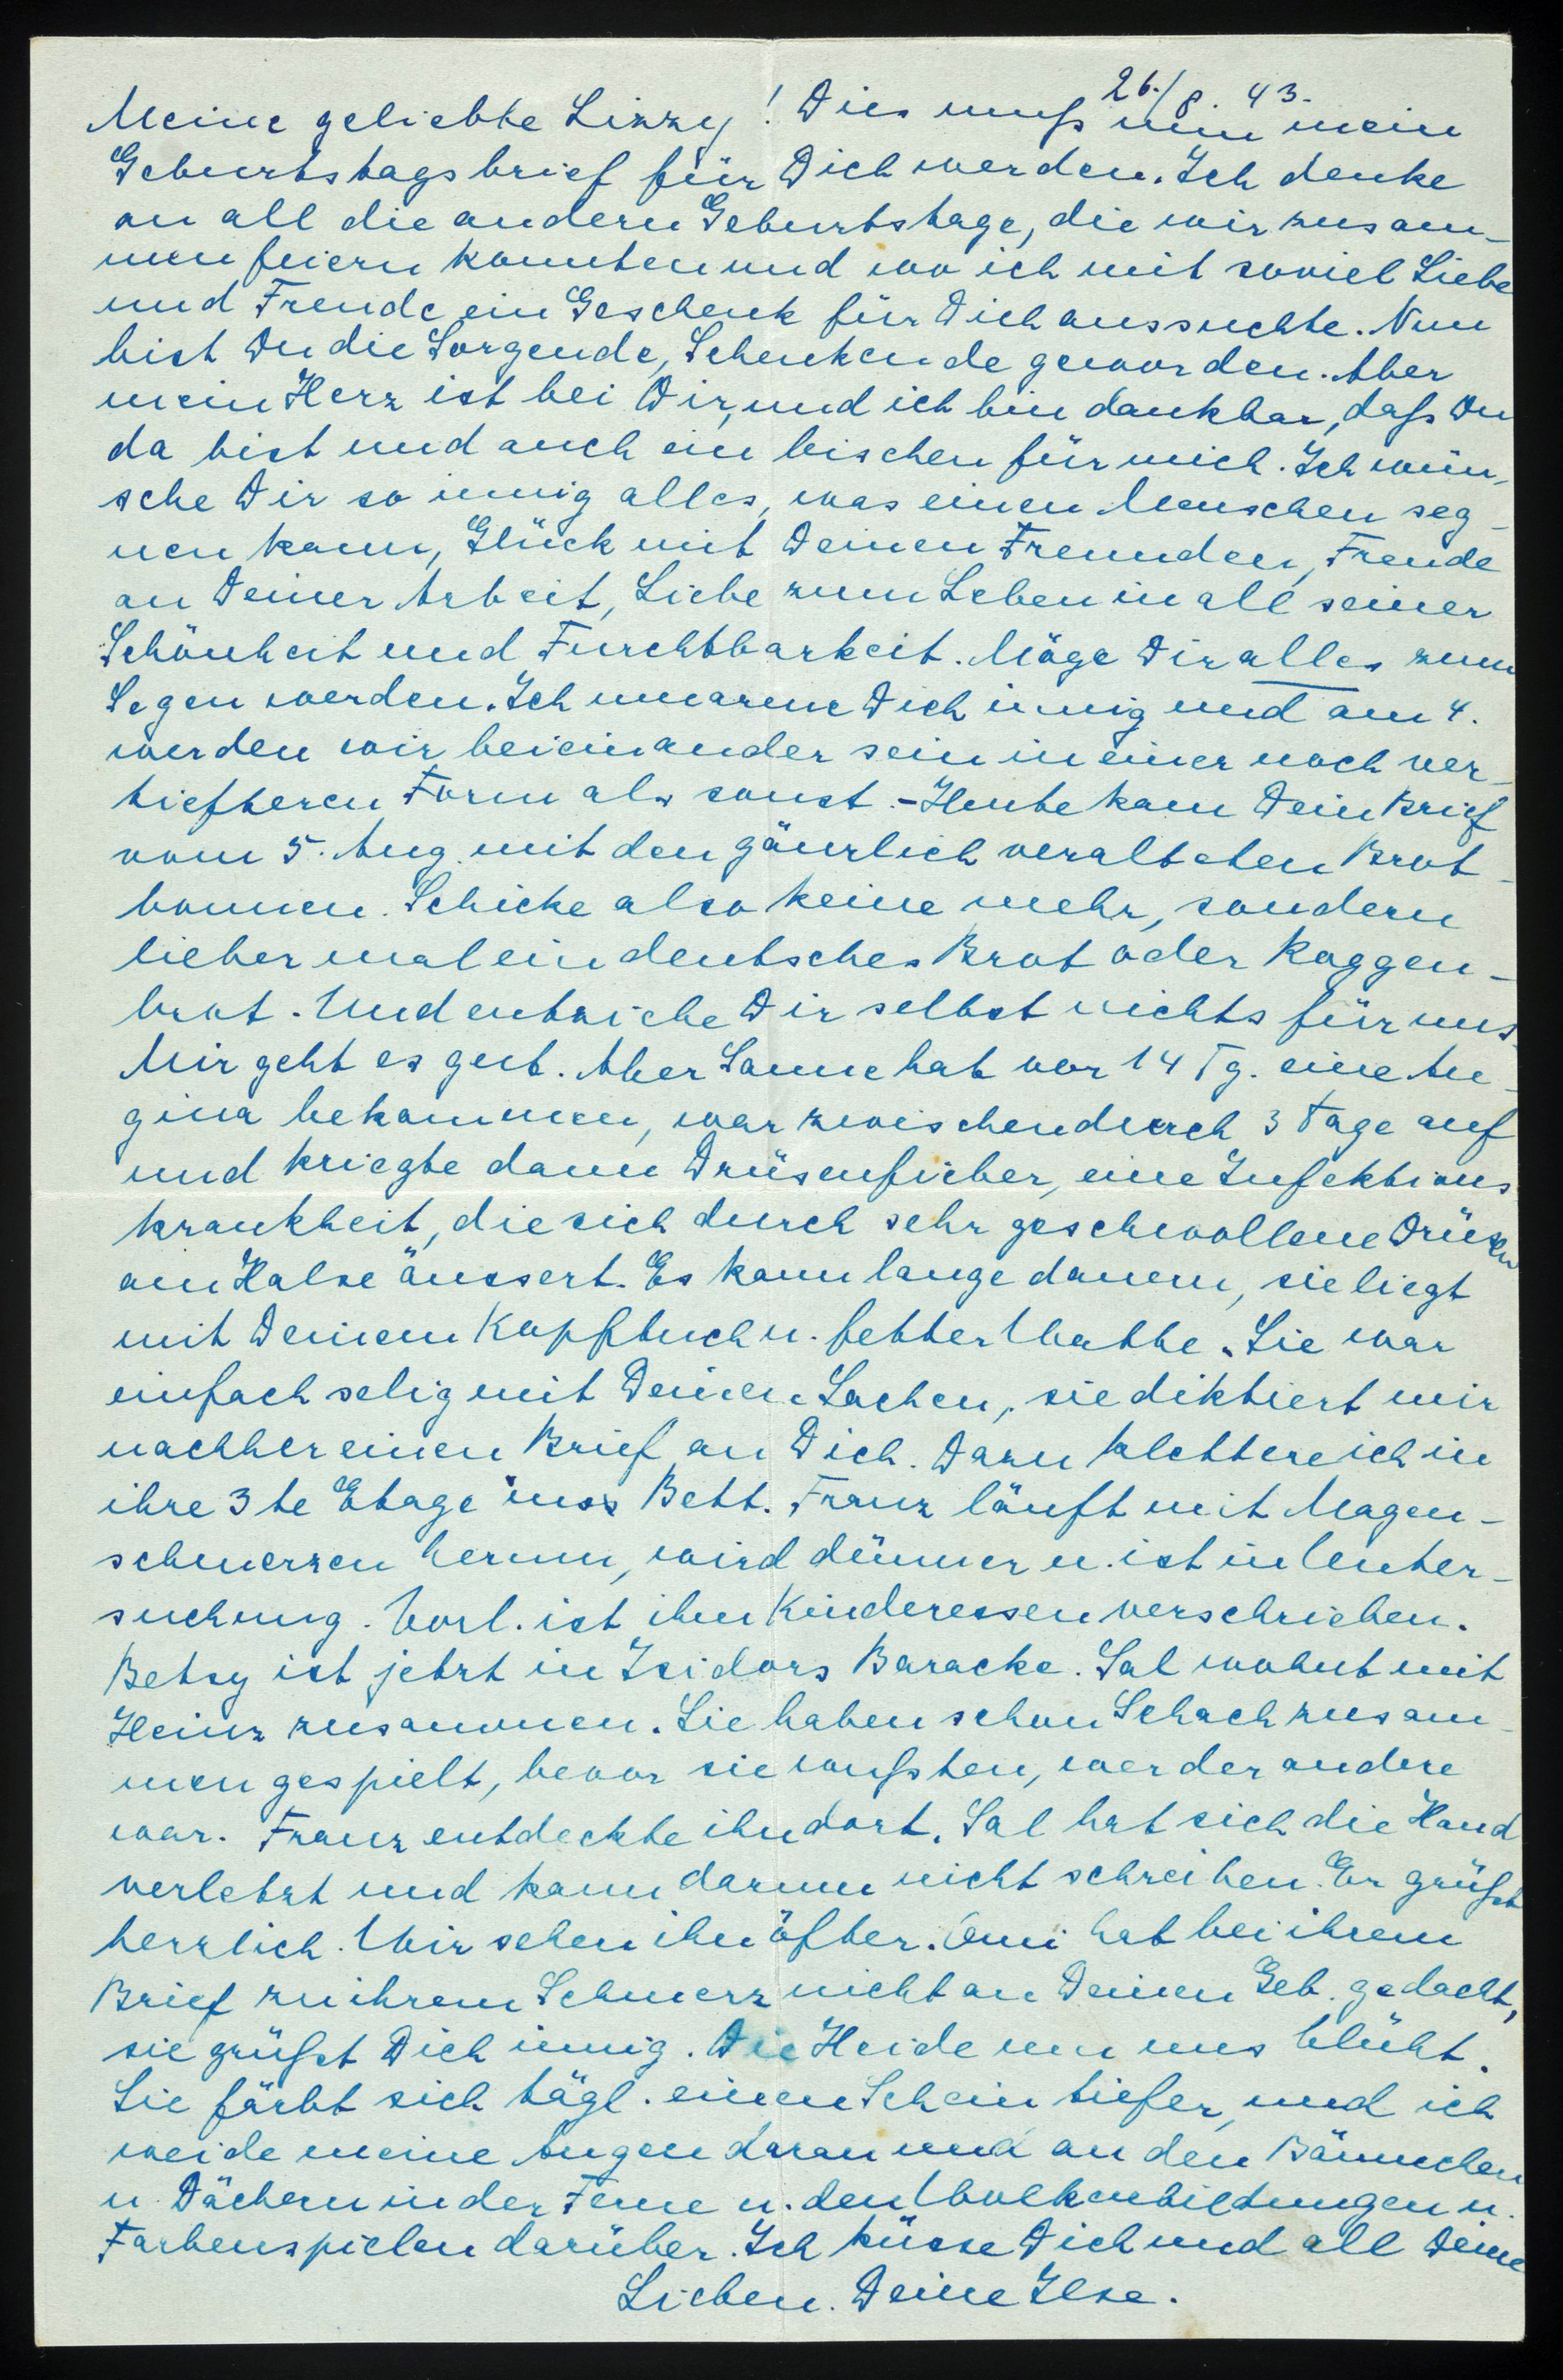 26./8. 43.
Meine geliebte Lizzy! Dies muß nun mein
Geburtstagsbrief für Dich werden. Ich denke
an all die andern Geburtstage, die wir zusam-
men feiern konnten und wo ich mit soviel Liebe
und Freude ein Geschenk für Dich aussuchte. Nun
bist Du die Sorgende, Schenkende geworden. Aber
mein Herz ist bei Dir, und ich bin dankbar, daß Du
da bist und auch ein bischen für mich. Ich wün-
sche Dir so innig alles, was einen Menschen seg-
nen kann, Glück mit Deinen Freunden, Freude
an Deiner Arbeit, Liebe zum Leben in all seiner
Schönheit und Furchtbarkeit. Möge Dir alles zum
Segen werden. Ich umarme Dich innig und am 4.
werden wir beieinander sein in einer noch ver-
tiefteren Form als sonst. - Heute kam Dein Brief
vom 5. Aug. mit den gänzlich veralteten Brot-
bonnen. Schicke also keine mehr, sondern
lieber mal ein deutsches Brot oder Roggen-
brot. Und entziehe Dir selbst nichts für uns.
Mir geht es gut. Aber Sanne hat vor 14 Tg. eine An-
gina bekommen, war zwischendurch 3 Tage auf
und kriegte dann Drüsenfieber, eine Infektions-
krankheit, die sich durch sehr geschwollene Drüsen
am Halse äussert. Es kann lange dauern, sie liegt
mit Deinem Kopftuch u. fetter Watte. Sie war
einfach selig mit Deinen Sachen, sie diktiert mir
nachher einen Brief an Dich. Dazu klettere ich in
ihre 3te Etage ins Bett. Franz läuft mit Magen-
schmerzen herum, wird dünner u. ist in Unter-
suchung. Vorl. ist ihm Kinderessen verschrieben.
Betsy ist jetzt in Isidors Baracke. Sal wohnt mit
Heinz zusammen. Sie haben schon Schach zusam-
men gespielt, bevor sie wußten, wer der andere
war. Franz entdeckte ihn dort. Sal hat sich die Hand
verletzt und kann darum nicht schreiben. Er grüßt
herzlich. Wir sehen ihn öfter. Omi hat bei ihrem
Brief zu ihrem Schmerz nicht an Deinen Geb. gedacht,
sie grüßt Dich innig. Die Heide um uns blüht.
Sie färbt sich tägl. einen Schein tiefer, und ich
weide meine Augen daran und an den Bäumchen
u. Dächern in der Ferne u. den Wolkenbildungen u.
Farbenspielen darüber. Ich küsse Dich und all Deine
Lieben. Deine Ilse.